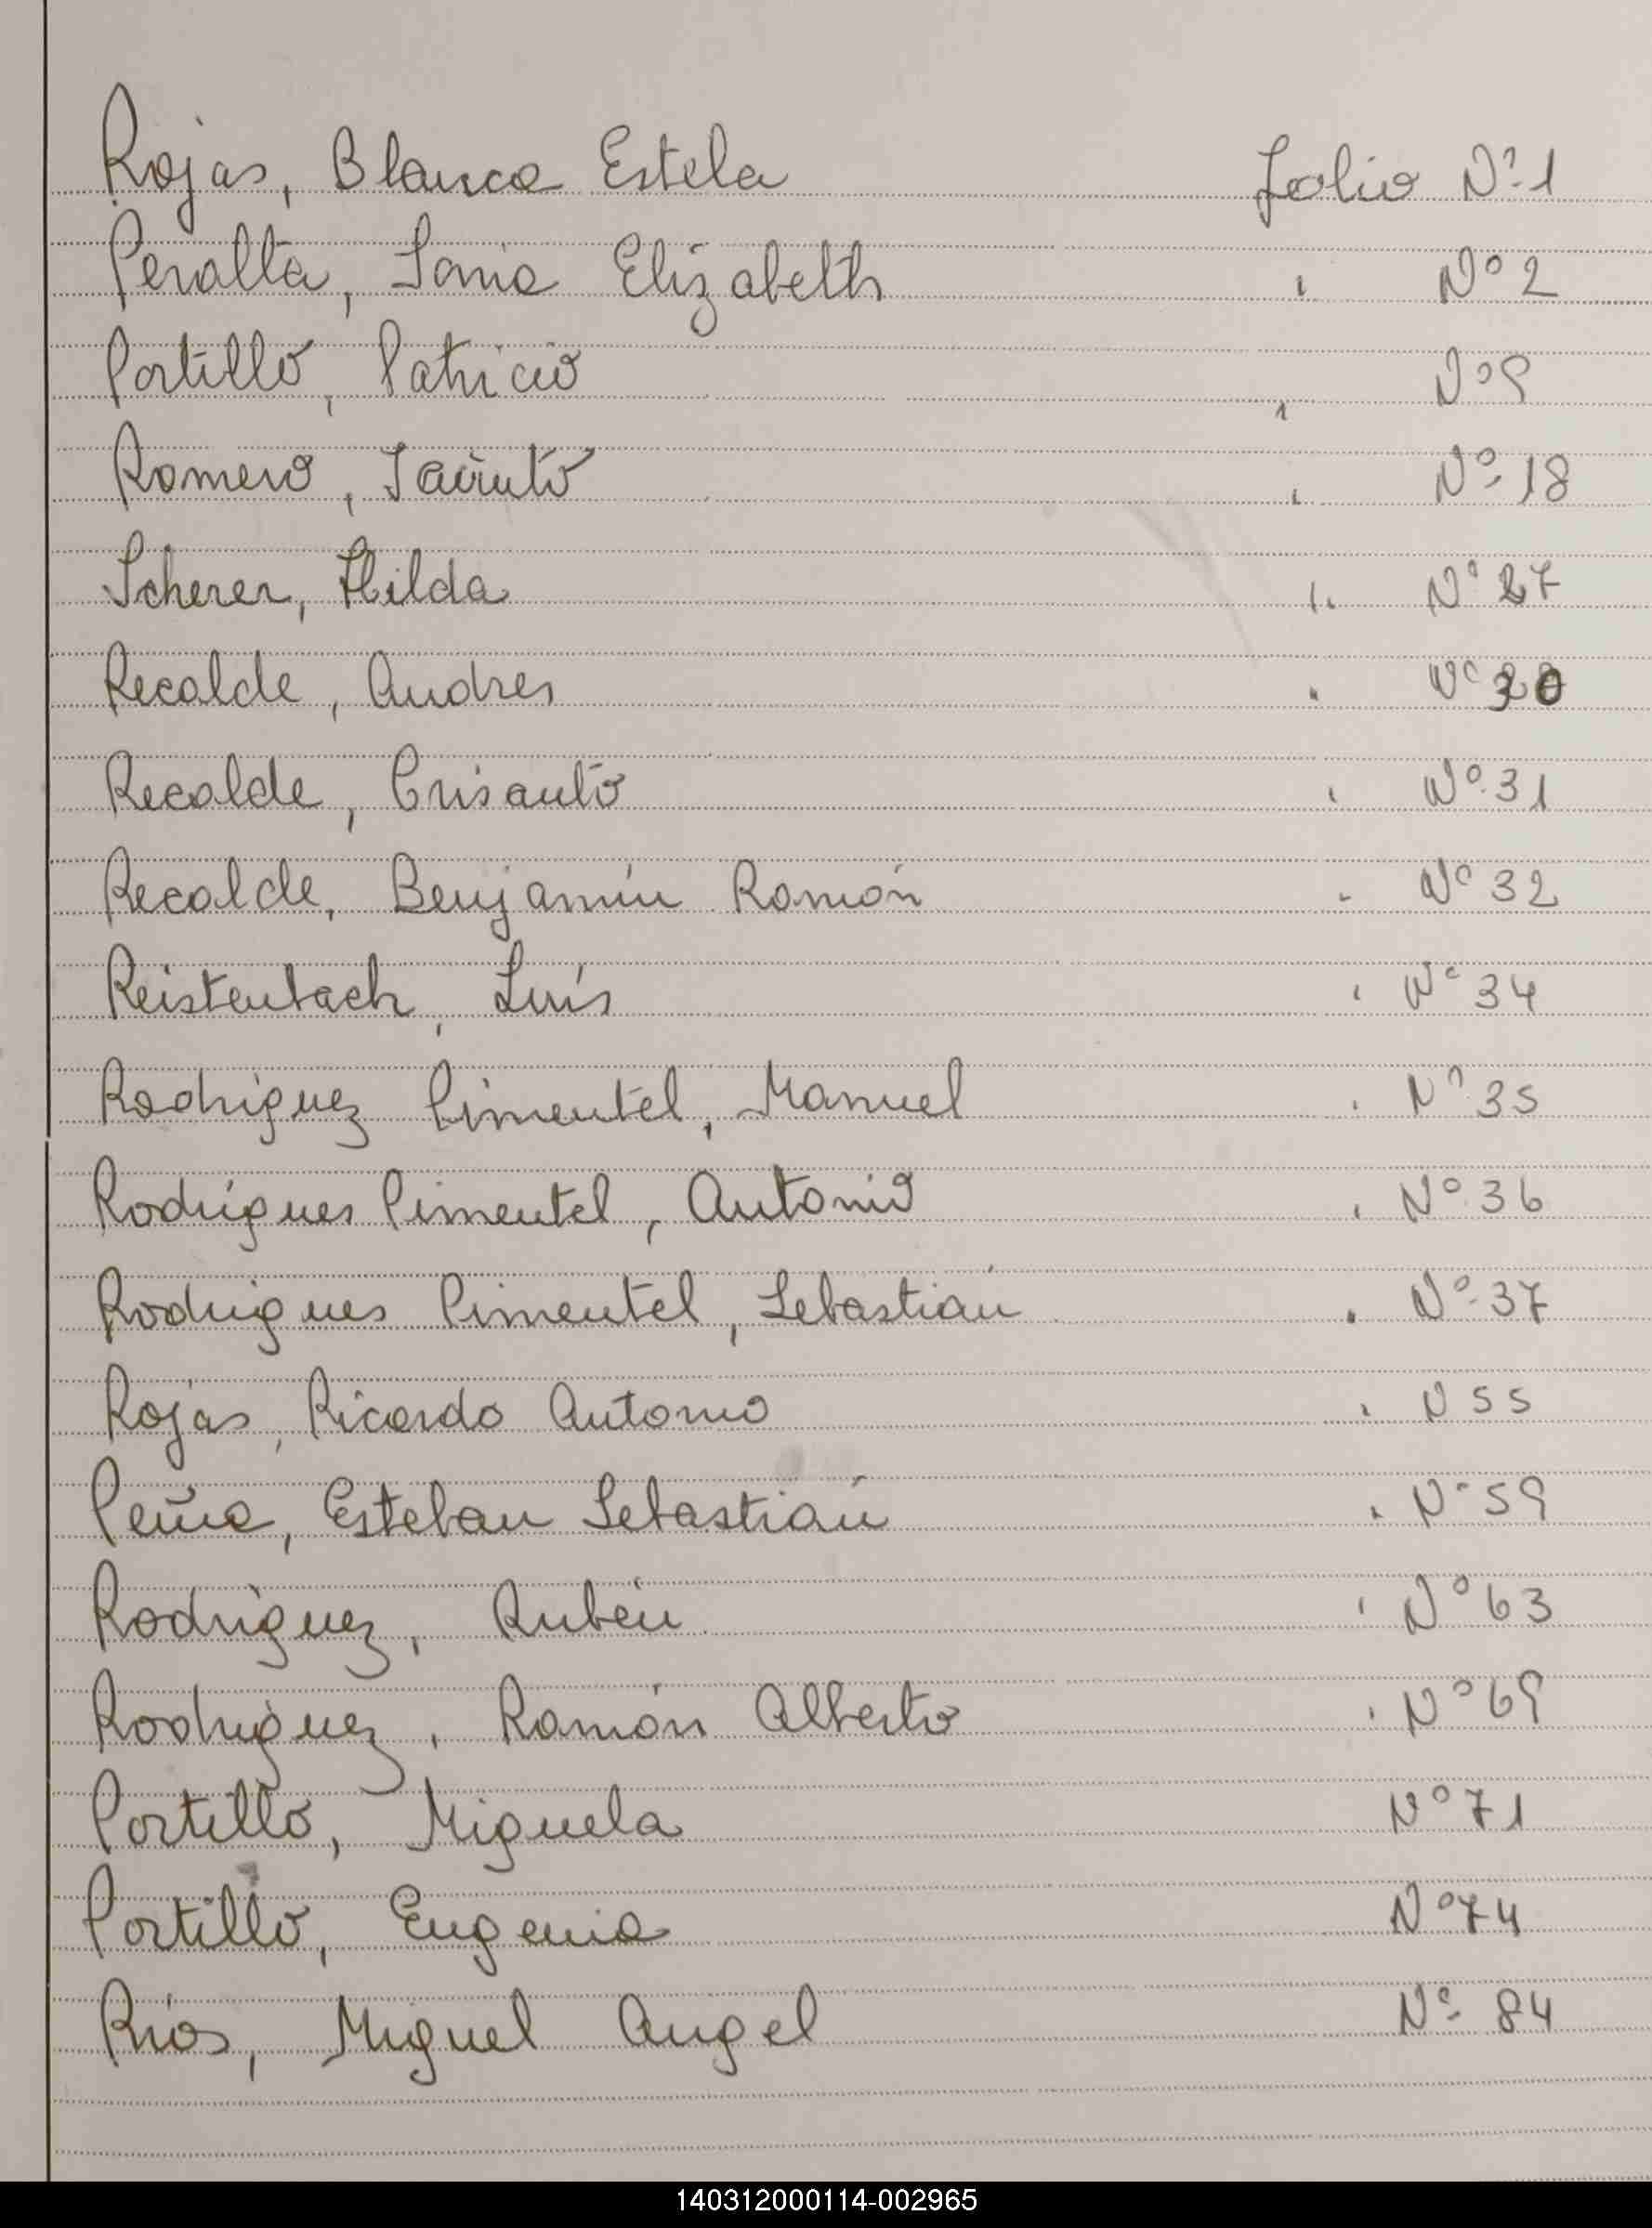 Rojas, Blanca Estela folio Nº 1
Peralta, Sonia Elizabeth " Nº 2
Portillo, Patricio " Nº 9
Romero, Jacinto " Nº 18
Scherer, Hilda " Nº 27
Recalde, Andres " Nº 30
Recalde, Crisanto " Nº 31
Recalde, Benjamín Ramón " Nº 32
Reistenbach, Luís " Nº 34
Rodriguez Pimentel, Manuel " Nº 35
Rodrígues Pimentel, Antonio " Nº 36
Rodrigues Pimentel, Sebastián " Nº 37
Rojas, Ricardo Antonio " N 55
Peña, Esteban Sebastián " Nº 59
Rodriguez, Rubén " Nº 63
Rodriguez, Ramón Alberto " Nº 69
Portillo, Miguela Nº 71
Portillo, Eugenia Nº 74
Ríos, Miguel Angel Nº 84
140312000114-002965